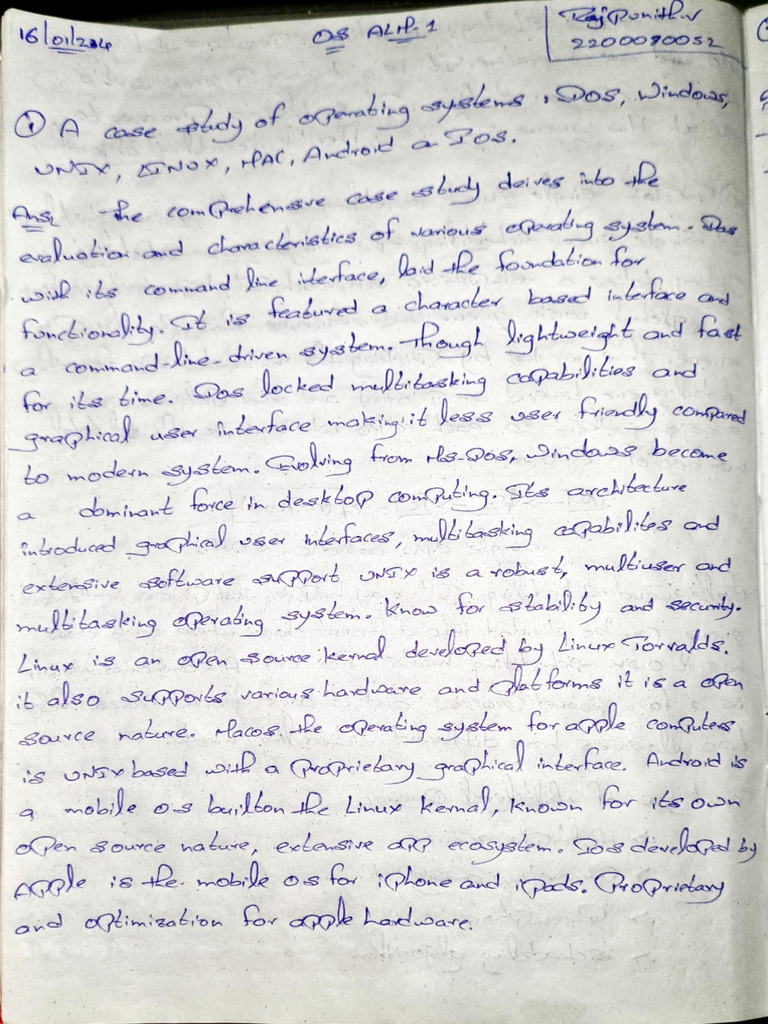 16/01/24 OS ALM-1 Raj Punith.v
2200090052
① A case study of operating systems : DOS, Windows,
UNIX, LINUX, MAC, Android on IOS.
Ans, The comprehensive case study deives into the
evaluation and characteristics of various operating system. Dos
with its command line interface, laid the foundation for
functionality. It is featured a character based interface and
a command-line-driven system. Though lightweight and fast
for its time. Dos locked multitasking capabilities and
graphical user interface making it less user friendly compared
to modern system. Evolving from Ms-Dos, windows become
a dominant force in desktop computing. Its architecture
introduced graphical user interfaces, multitasking capabilites and
extensive software support UNIX is a robust, multiuser and
multitasking operating system. Know for stability and security.
Linux is an open source kernel developed by Linux Torvalds.
it also supports various hardware and platforms it is a open
source nature. Macos. the operating system for apple computers
is UNIX based with a proprietary graphical interface. Android is
a mobile os builton the Linux kernel, known for its own
open source nature, extensive app ecosystem. Ios developed by
Apple is the mobile os for iphone and ipads. Proprietary
and optimization for apple hardware.